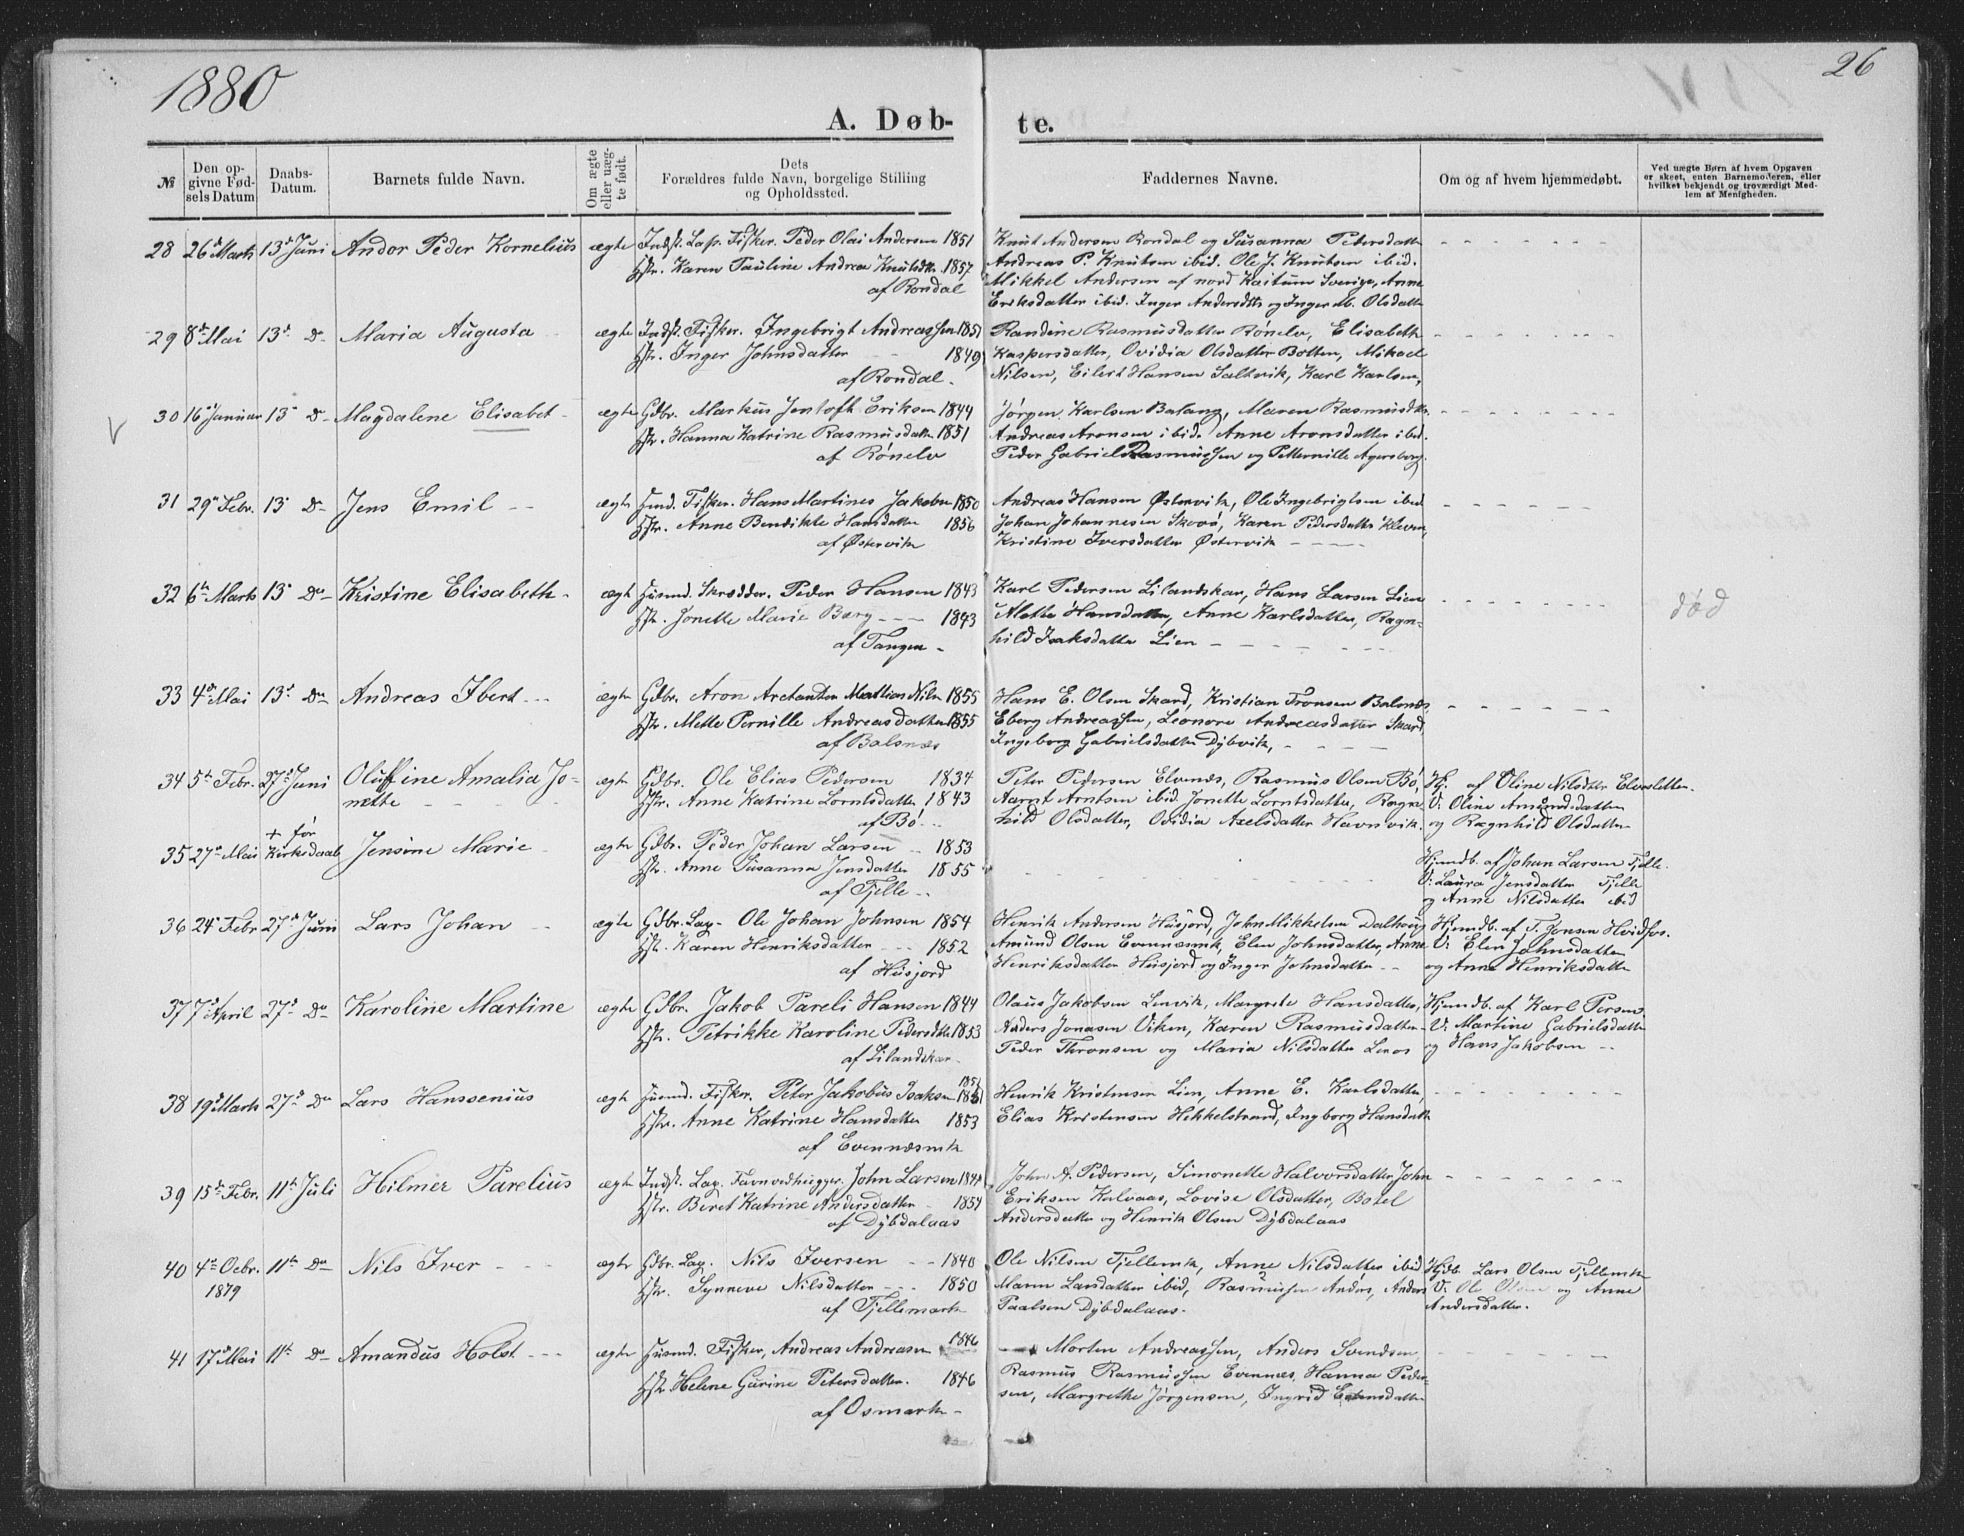 1880
26
A. Døb-
te.
№
Den op-
givne Fød-
sels Datum
Daabs-
Datum.
Barnets fulde Navn.
Om ægte
eller uæg-
te født.
Dets
Forældres fulde Navn, borgelige Stilling
og Opholdssted.
Faddernes Navne.
Om og af hvem hjemmedøbt.
Ved uægte Børn af hvem Opgaven
er skeet, enten Barnemoderen, eller
hvilket bekjendt og troværdigt Med-
lem af Menigheden.
28 26de Marts 13de Juni Andor Peder Kornelius ægte Indst. Lap. Fisker. Peder Olai Andersen 1851
Hstr. Karen Pauline Andrea Knutsdtr. 1857
af Rondal
Knut Andersen Rondal og Susanna Petersdatter
Andreas P. Knutsen ibid. Ole J. Knutsen ibid.
Mikkel Andersen af nord Kaitum Sverige, Anne
Eriksdatter ibid. Inger Andersdtr og Inger M. Olsdatter
29 8de Mai 13de Do Maria Augusta ægte Indst. Fisker. Ingebrigt Andreassen 1851
Hstr. Inger Johnsdatter 1849
af Rondal.
Randine Rasmusdatter Rønelv, Elisabeth
Kaspersdatter, Ovidia Olsdatter Botten, Mikael
Nilsen, Eilert Hansen Saltvik, Karl Karlsen,
30 16de Januar 13de Do Magdalene Elisabet ægte Gdbr. Markus Jentoft Eriksen 1844
Hstr. Hanna Katrine Rasmusdatter 1851
af Rønelv
Jørgen Karlsen Balang, Maren Rasmusdtr.
Andreas Aronsen ibid. Anne Aronsdatter ibid.
Peder Gabriel Rasmussen og Petternille Agersborg.
31 29de Febr. 13de Do Jens Emil ægte Husmd. Fisker. Hans Martines Jakobsen 1850
Hstr. Anne Bendikte Hansdatter 1856
af Østervik
Andreas Hansen Østervik, Ole Ingebrigtsen ibid
Johan Johannesen Skovø, Karen Pedersdatter Kleven,
Kristine Iversdatter Østervik
32 6te Marts 13de Do Kristine Elisabeth ægte Husmd. Skrædder. Peder Hansen 1843
Hstr. Jonette Marie Berg 1843
af Tangen
Karl Pedersen Lilandskar, Hans Larsen Lien
Alethe Hansdatter, Anne Karlsdatter, Ragn-
hild Isaksdatter Lien
død
33 4de Mai 13de Do Andreas Ibert ægte Gdbr. Aron Arctander Mathias Nilsn 1855
Hstr. Mette Pernille Andreasdatter 1855
af Balsnæs
Hans E. Olsen Skard, Kristian Tronsen Balsnæs,
Eberg Andreassen, Leonore Andreasdatter Skard,
Ingeborg Gabrielsdatter Dybvik,
34 5te Febr. 27de Juni Oluffine Amalia Jo-
nette
ægte Gdbr. Ole Elias Pedersen 1834
Hstr. Anne Katrine Lorntsdatter 1843
af Bø
Peter Pedersen Elvenes, Rasmus Olsen Bø,
Aarnt Arntsen ibid. Jonette Lorntsdatter, Ragn-
hild Olsdatter, Ovidia Axelsdatter Havnvik.
Hj. af Oline Nilsdtr Elvesletten.
V: Oline Amundsdatter
og Ragnhild Olsdatter
35 27de Mai + før
Kirkedaab
Jensine Marie ægte Gdbr. Peder Johan Larsen 1853
Hstr. Anne Susanna Jensdatter 1855
af Fjelle
Hjemdb. af Johan Larsen Fjelle.
V: Laura Jensdatter Fjelle
og Anne Nilsdatter ibid
36 24de Febr 27de Juni Lars Johan ægte Gdbr. Lap. Ole Johan Johnsen 1854
Hstr. Karen Henriksdatter 1852
af Husjord
Henrik Andersen Husjord, John Mikkelsen Dalhoug
Amund Olsen Evenæsmk, Elen Johnsdatter, Anne
Henriksdatter Husjord og Inger Johnsdatter
Hjemdb. af T. Jonsen Hvidfos.
V: Elen Johnsdatter
og Anne Henriksdatter
37 7de April 27de Do Karoline Martine ægte Gdbr. Jakob Pareli Hansen 1844
Hstr. Petrikke Karoline Pedersdtr 1853
af Lilandskar
Olaus Jakobsen Lenvik, Margrete Hansdatter,
Anders Jonasen Viken, Karen Rasmusdatter
Peder Thronsen og Maria Nilsdatter Lenes
Hjemdb. af Karl Persen
V: Martine Gabrielsdatter
og Hans Jakobsen
38 19de Marts 27de Do Lars Hanssenius ægte Husmd. Fisker. Peter Jakobus Isaksen 1851
Hstr. Anne Katrine Hansdatter 1853
af Evennæsmk
Henrik Kristensen Lien, Anne E. Karlsdatter,
Elias Kristensen Hekkelstrand, Ingborg Hansdatter
39 15de Febr. 11te Juli Hilmer Parelius ægte Indst. Lap. Favnvedhugger. John Larsen 1844
Hstr. Beret Katrine Andersdatter 1851
af Dybdalaas
John A. Pedersen, Simonette Halvorsdatter, John
Eriksen Kulvaas, Lovise Olsdatter, Botel
Andersdatter og Henrik Olsen Dybdalaas
40 4de Octbr.
1879
11te Do Nils Iver ægte Gdbr. Lap. Nils Iversen 1840
Hstr. Synneve Nilsdatter 1850
af Fjellemark
Ole Nilsen Fjellemk, Anne Nilsdatter ibid
Maren Larsdatter ibid, Rasmussen Anders, Anders
Paalsen Dybdalaas.
Hjdb. Lars Olsen Fjellemk
V: Ole Olsen og Anne
Andersdatter.
41 17de Mai 11te Do Amandus Holst ægte Husmd. Fisker, Andreas Andreasen 1846
Hstr. Helene Gurine Petersdatter. 1846
af Osmark
Morten Andreassen, Anders Svendsen,
Rasmus Rasmussen Evennes, Hanna Peder-
sen, Margrethe Jørgensen, Ingrid